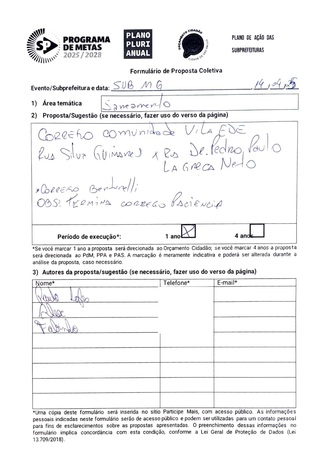 SP PROGRAMA DE METAS 2025 / 2028
PLANO PLURI ANUAL
ORÇAMENTO CIDADÃO
PLANO DE AÇÃO DAS SUBPREFEITURAS
Formulário de Proposta Coletiva
Evento/Subprefeitura e data: SUB MG 14,4,5
1) Área temática Saneamento
2) Proposta/Sugestão (se necessário, fazer uso do verso da página)
CORREGO comunidade VILA EDE
Rua Silva GUIMARAES x RA Dr. Pedro, Paulo
LA GARCA Neto
*CORREGO Bertinelli
OBS: TERMINA CORREGO PACIENCIA
Período de execução*: 1 ano 4 anos
*Se você marcar 1 ano a proposta será direcionada ao Orçamento Cidadão; se você marcar 4 anos a proposta
será direcionada ao PdM, PPA e PAS. A marcação é meramente indicativa e poderá ser alterada durante a
análise da proposta, caso necessário.
3) Autores da proposta/sugestão (se necessário, fazer uso do verso da página)
Nome* Telefone* E-mail*
*Uma cópia deste formulário será inserida no sítio Participe Mais, com acesso público. As informações
pessoais indicadas neste formulário serão de acesso público e podem ser utilizadas para um contato pessoal
para fins de esclarecimentos sobre as propostas apresentadas. O preenchimento dessas informações no
formulário implica concordância com esta condição, conforme a Lei Geral de Proteção de Dados (Lei
13.709/2018).